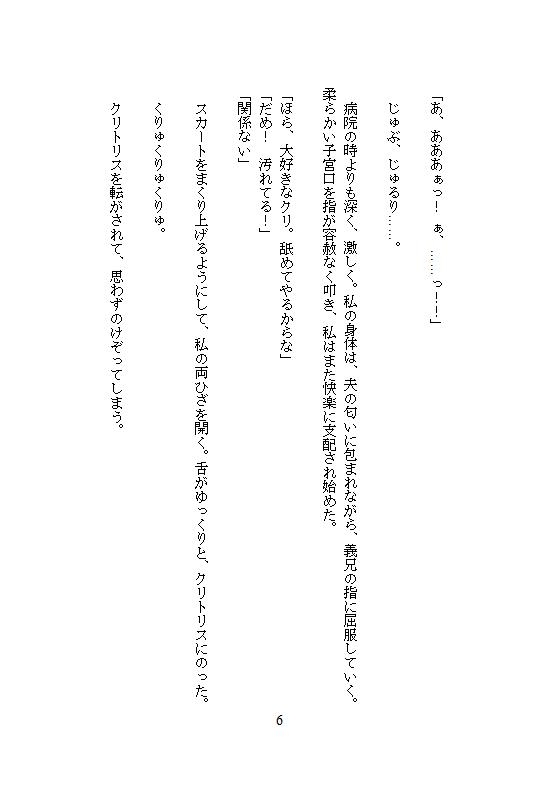 「あ、あああぁっ！　ぁ、……っ！！」
じゅぶ、じゅるり……。
病院の時よりも深く、激しく。私の身体は、夫の匂いに包まれながら、義兄の指に屈服していく。
柔らかい子宮口を指が容赦なく叩き、私はまた快楽に支配され始めた。
「ほら、大好きなクリ。舐めてやるからな」
「だめ！　汚れてる！」
「関係ない」
スカートをまくり上げるようにして、私の両ひざを開く。舌がゆっくりと、クリトリスにのった。
くりゅくりゅくりゅ。
クリトリスを転がされて、思わずのけぞってしまう。
6